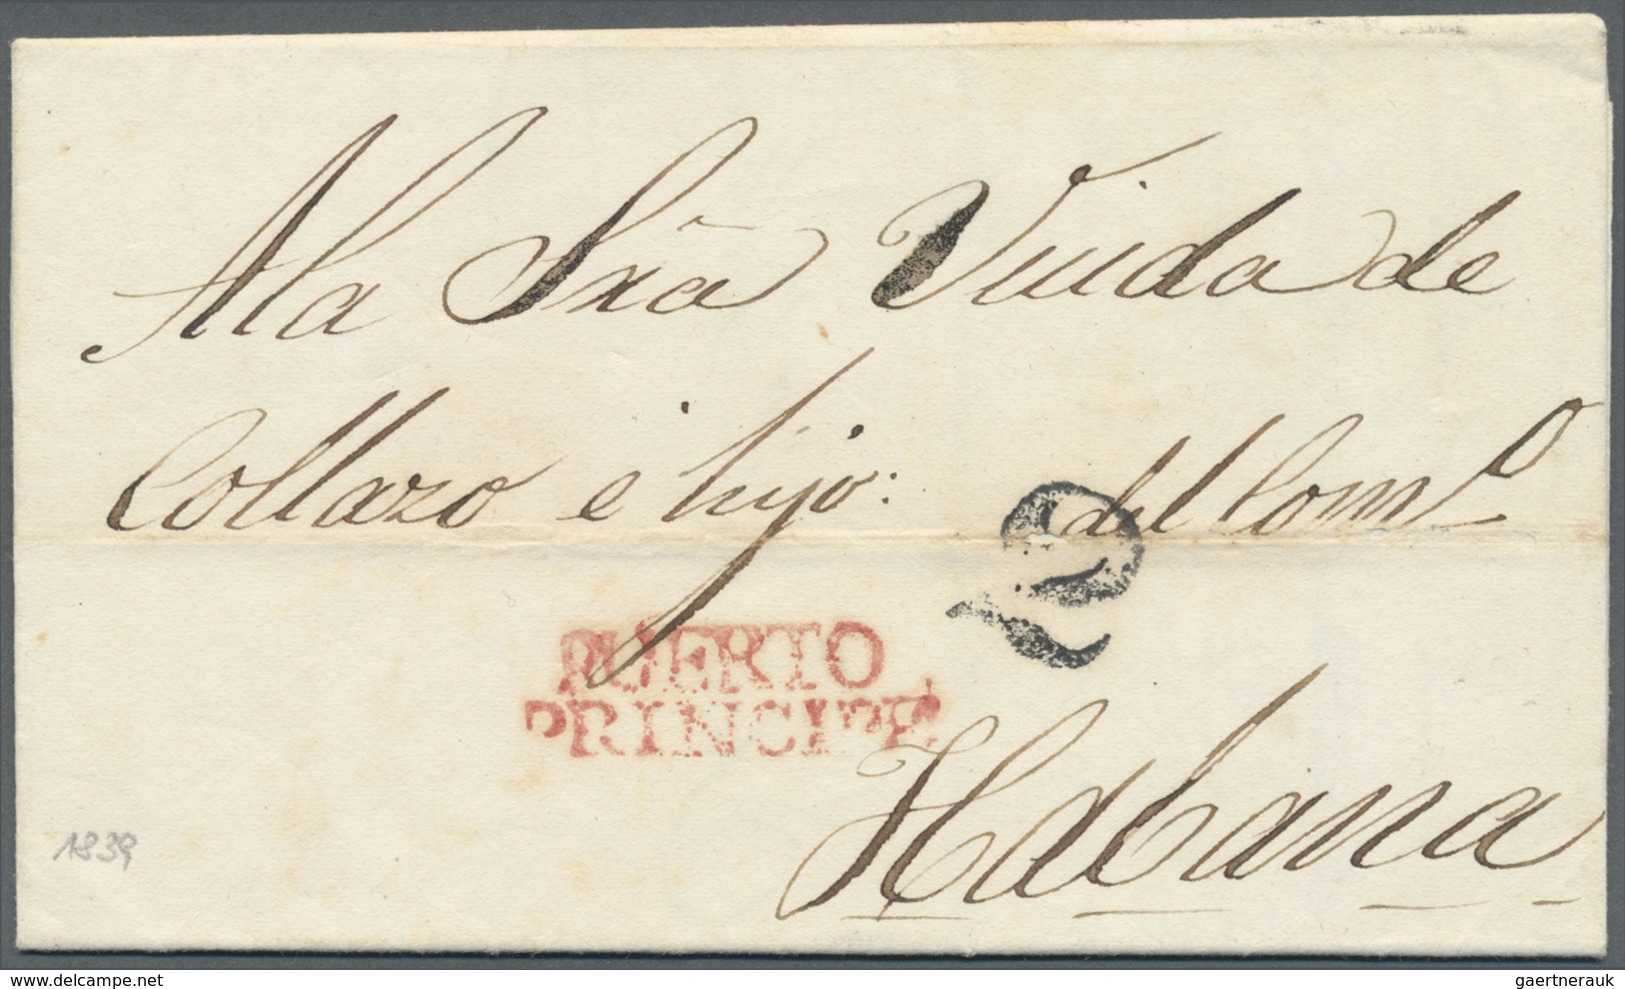 A la Sra Viuda de
Collazo e hijo: del Como
2
PUERTO
PRINCIPE
Habana
1839
the-philatelist.delcampe.net
gaertnerauk